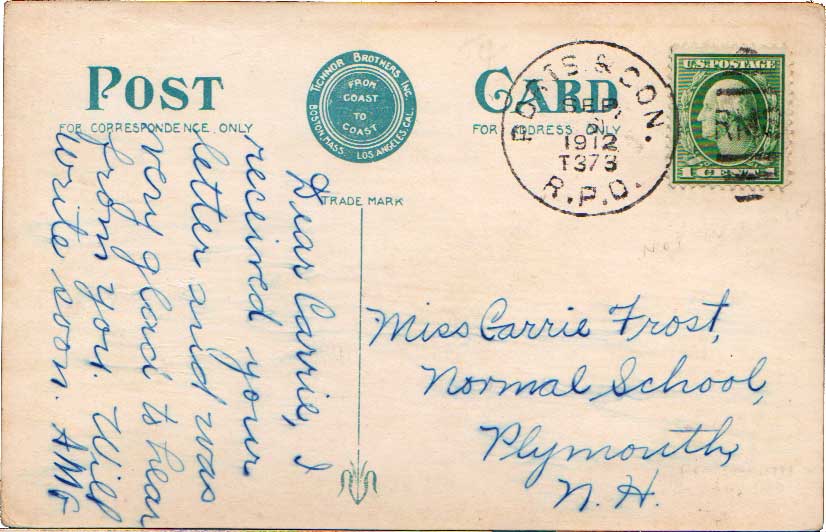 POST
CARD
FOR CORRESPONDENCE ONLY
FOR ADDRESS ONLY
TICHNOR BROTHERS INC.
BOSTON, MASS. LOS ANGELES, CAL.
FROM
COAST
TO
COAST
TRADE MARK
& CON.
SEP
1912
T373
R.P.O.
U.S. POSTAGE
1 CENT 1
Dear Carrie, I
received your
letter and was
very glad to hear
from you. Will
write soon. AMG
Miss Carrie Frost,
Normal School,
Plymouth,
N.H.